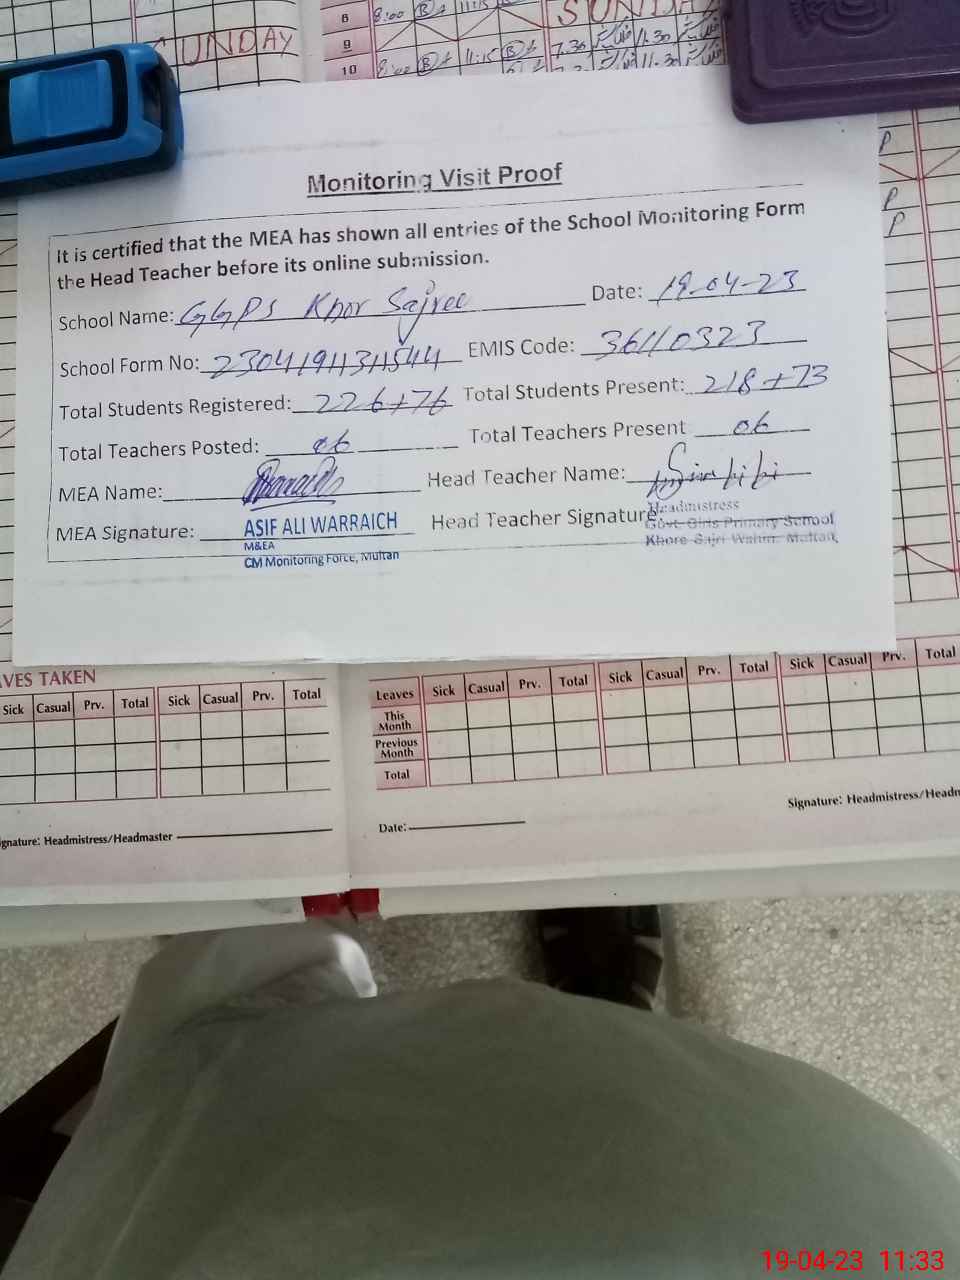 SUNDAY
8 8:00 11:15 SUNDAY
9
10 8:00 11:15 7.30 11.30
Monitoring Visit Proof
It is certified that the MEA has shown all entries of the School Monitoring Form
the Head Teacher before its online submission.
School Name: GGPS Khor Sajree Date: 19-04-23
School Form No: EMIS Code: 36110323
Total Students Registered: 226+76 Total Students Present: 218+73
Total Teachers Posted: 06 Total Teachers Present 06
MEA Name: Head Teacher Name:
MEA Signature: ASIF ALI WARRAICH Head Teacher Signature Headmistress
M&EA Govt. Girls Primary School
CM Monitoring Force, Multan Khore Sajri Wahin Multan
P
P
P
VES TAKEN
Sick Casual Prv. Total Sick Casual Prv. Total
Leaves Sick Casual Prv. Total Sick Casual Prv. Total Sick Casual Prv. Total
This Month
Previous Month
Total
gnature: Headmistress/Headmaster
Date:
Signature: Headmistress/Headm
19-04-23 11:33